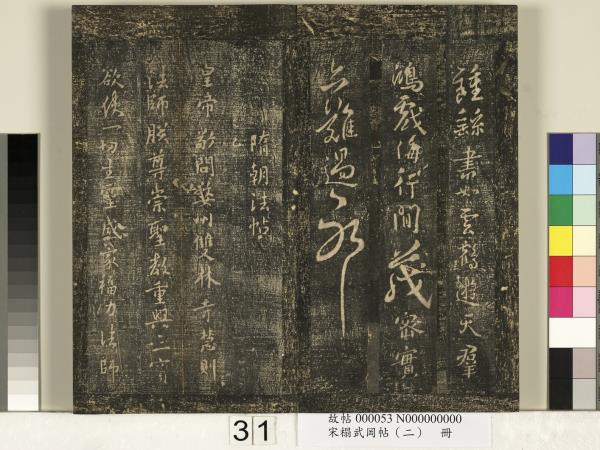 鍾繇書如雲鵠遊天羣
鴻戲海行間茂密實
亦難過耶
隋朝法帖
皇帝敬問婺州雙林寺慧則
法師朕尊崇聖教重興三寶
欲使一切生靈咸蒙福力法師
31
故帖 000053 N000000000
宋榻武岡帖(二) 冊